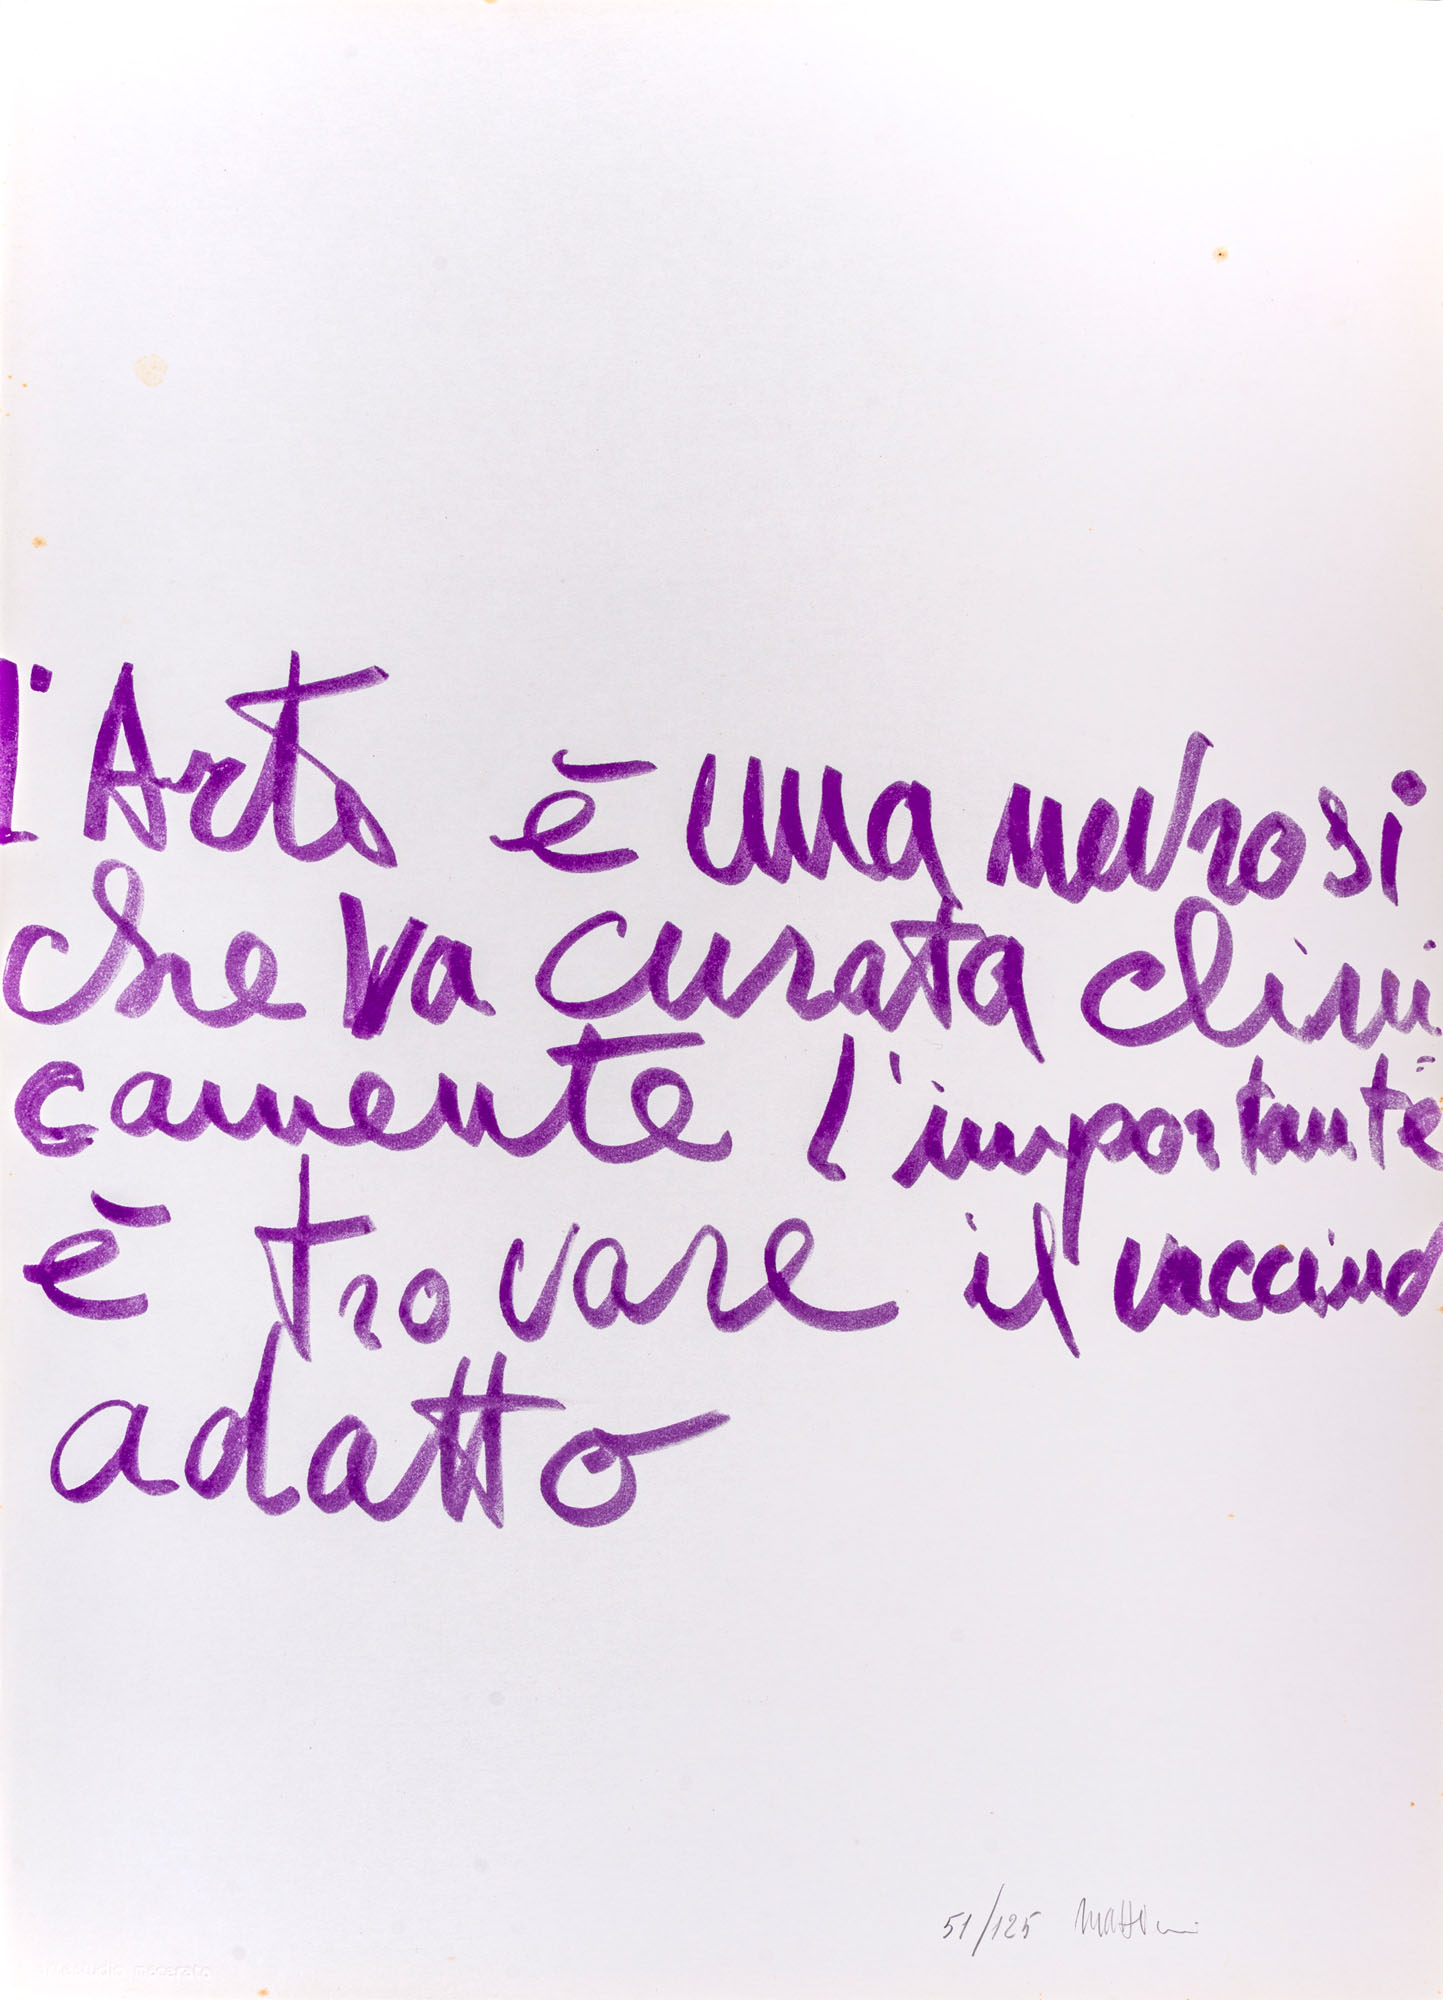 l'Arte è una nevrosi
che va curata clini
camente l'importante
è trovare il vaccino
adatto
51/125
macerata